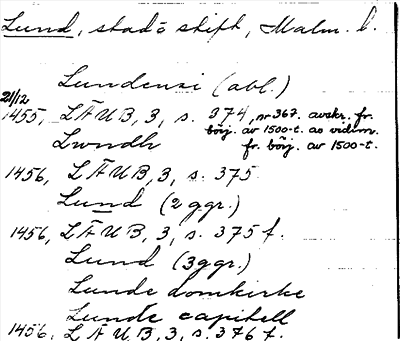 Lund, stad o skift, Malm. l.
Lundensi (abl.)
21/12
1455, LÄUB, 3, s. 374, nr 367. avskr. fr.
börj. av 1500-t. as vidim.
Lwndh fr. börj. av 1500-t.
1456, LÄUB, 3, s. 375.
Lund (2 ggr.)
1456, LÄUB, 3, s. 375 f.
Lund (3ggr.)
Lunde domkirke
Lunde capitell
1456, LÄUB, 3, s. 376 f.